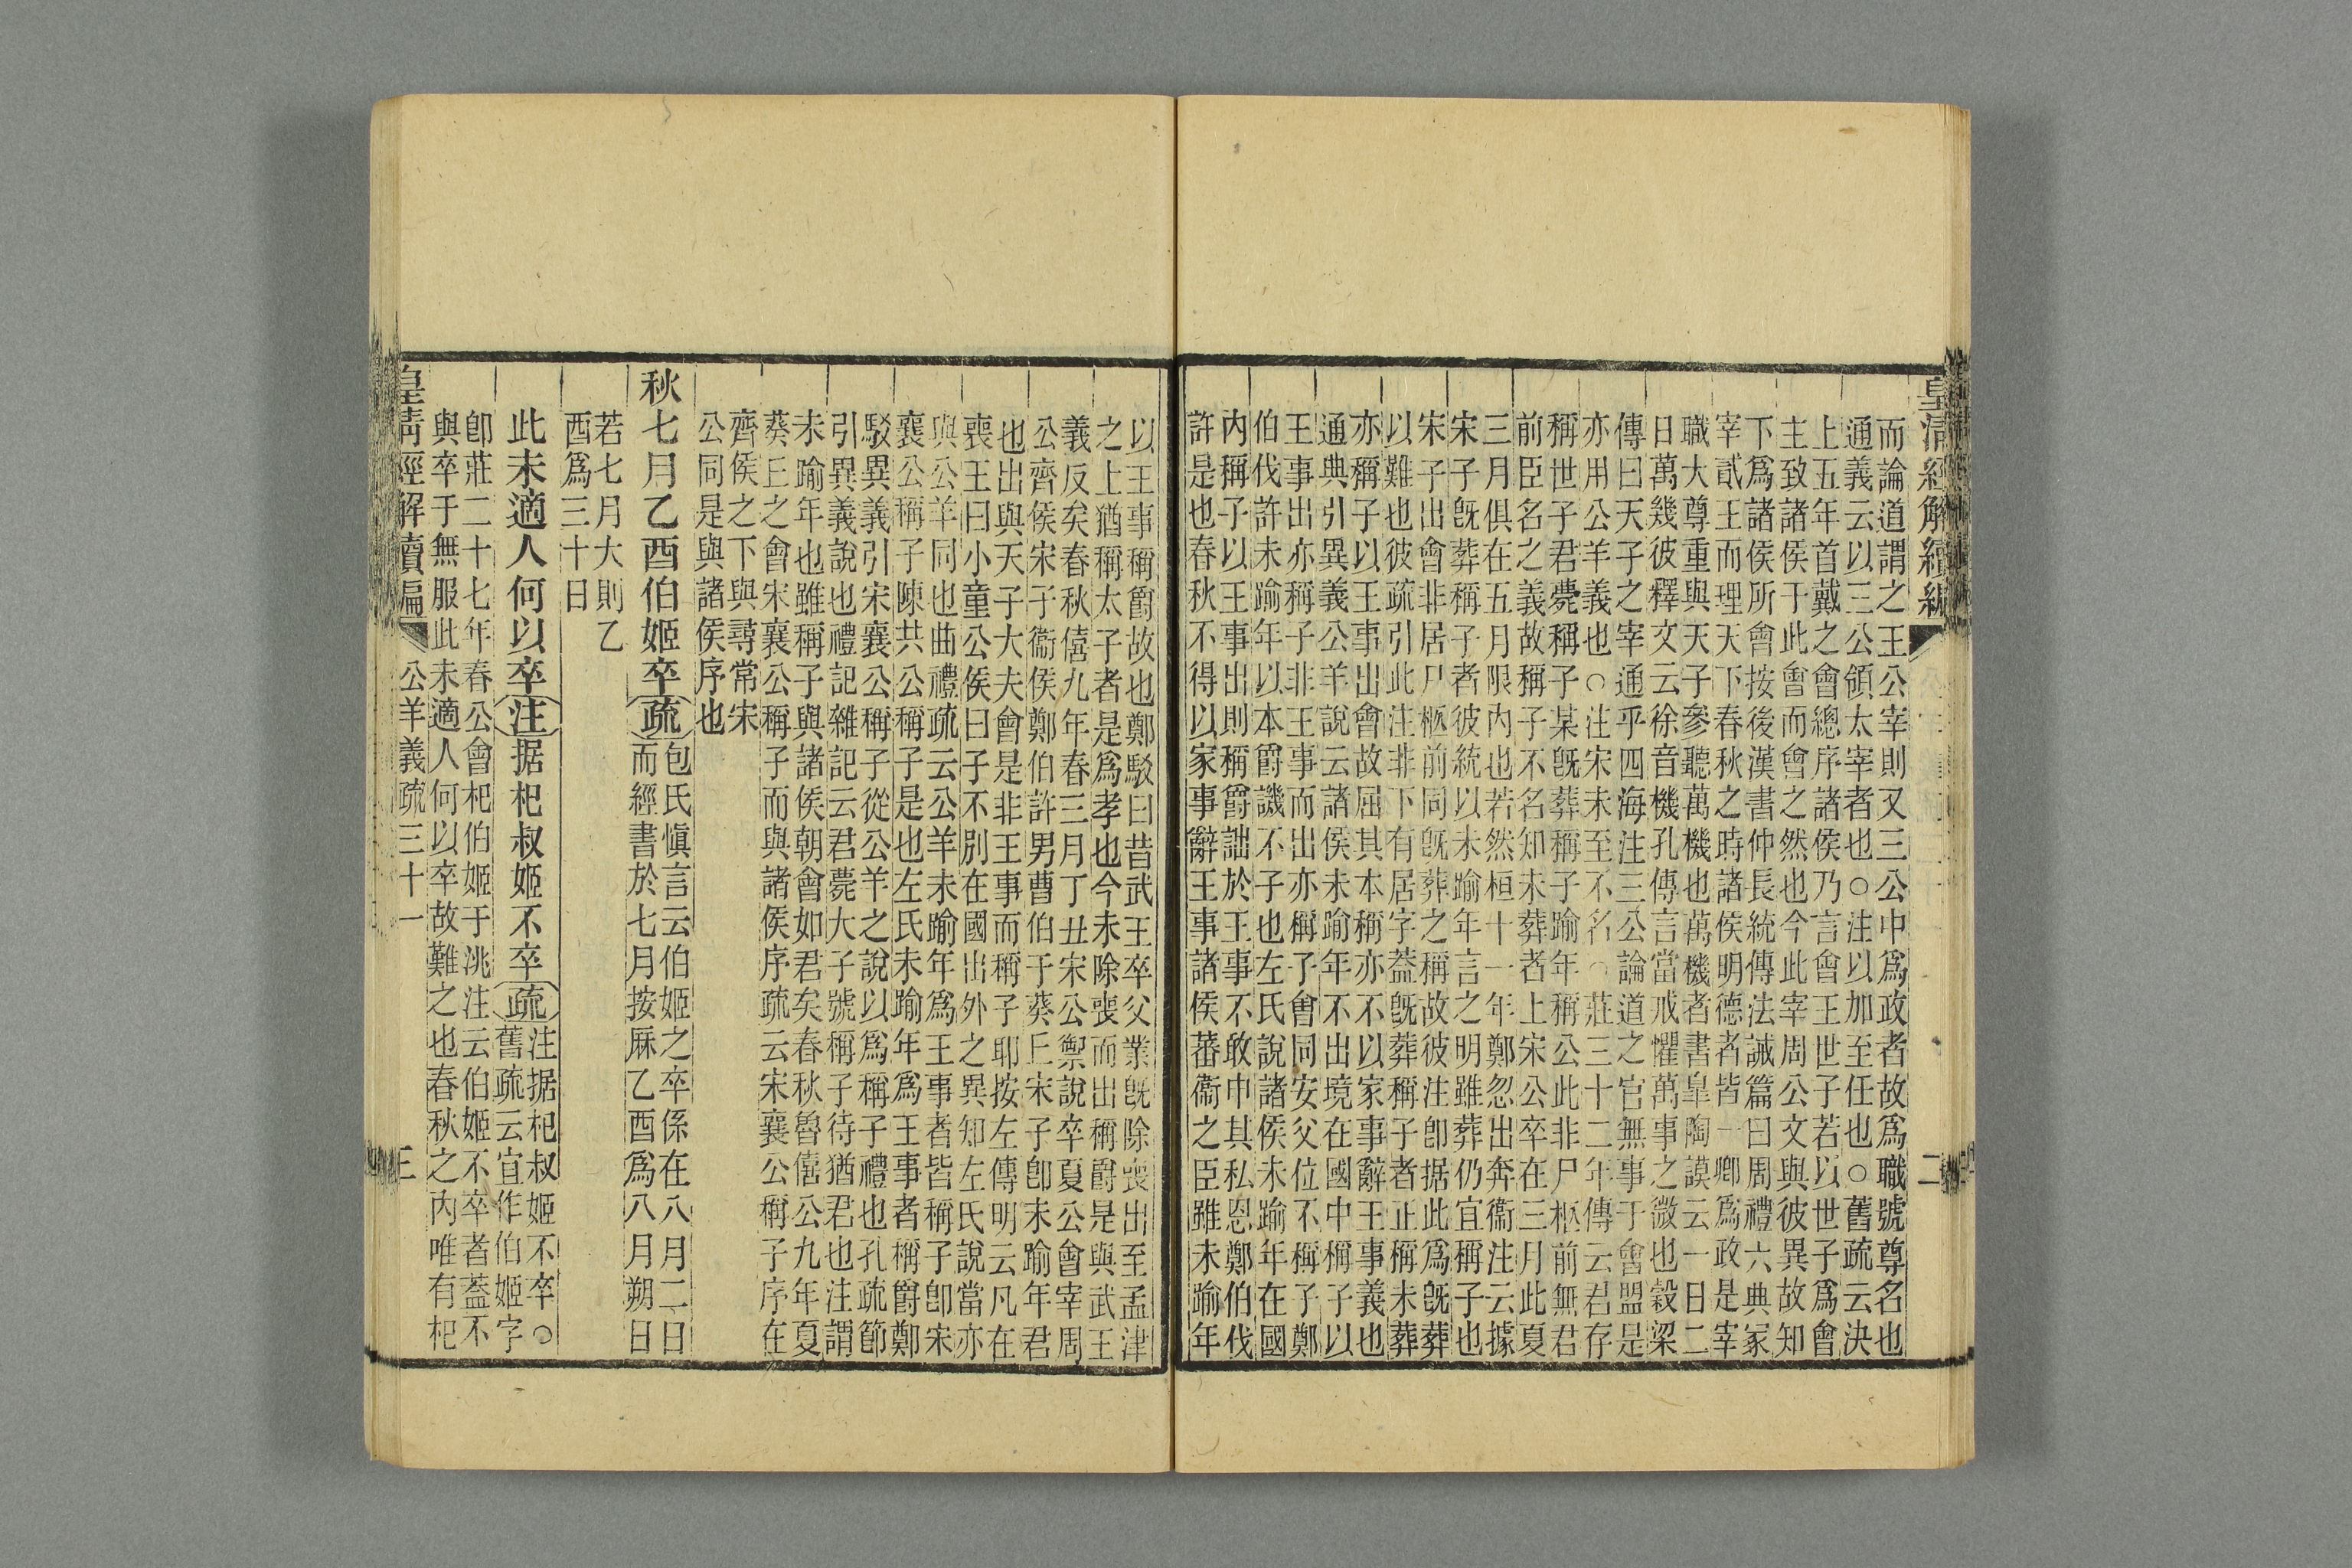 皇清經解續編
二
而論道謂之王公宰則又三公中爲政者故爲職號尊名也
通義云以三公領太宰者也○注以加至任也○舊疏云決
上五年首戴之會總序諸侯乃言會王世子若以世子爲會
主致諸侯于此會而會之然也今此宰周公文與彼異故知
下爲諸侯所會按後漢書仲長統傳法誡篇曰周禮六典冢
宰貳王而理天下春秋之時諸侯明德者皆一卿爲政是宰
職大尊重與天子參聽萬機也萬機者書皇陶謨云一日二
日萬幾彼釋文云徐音機孔傳言當戒懼萬事之微也穀梁
傳曰天子之宰通乎四海注三公論道之官無事于會盟是
亦用公羊義也○注宋未至不名○莊三十二年傳云君存
稱世子君薨稱子某旣葬稱子踰年稱公此非尸柩前無君
前臣名之義故稱子不名知未葬者上宋公卒在三月此夏
三月俱在五月限內也若然桓十一年鄭忽出奔衞注云據
宋子旣葬稱子者彼統以未踰年言之明雖葬仍宜稱子也
宋子出會非居尸柩前同旣葬之稱故彼注卽据此爲旣葬
以難也彼疏引此注非下有居字葢旣葬稱子者正稱未葬
亦稱子以王事出會故屈其本稱亦不以家事辭王事義也
通典引異義公羊說云諸侯未踰年不出境在國中稱子以
王事出亦稱子非王事而出亦稱子會同安父位不稱子鄭
伯伐許未踰年以本爵譏不子也左氏說諸侯未踰年在國
內稱子以王事出則稱爵詘於王事不敢申其私恩鄭伯伐
許是也春秋不得以家事辭王事諸侯蕃衞之臣雖未踰年
以王事稱爵故也鄭駁曰昔武王卒父業旣除喪出至孟津
之上猶稱太子者是爲孝也今未除喪而出稱爵是與武王
義反矣春秋僖九年春三月丁丑宋公禦說卒夏公會宰周
公齊侯宋子衞侯鄭伯許男曹伯于葵丘宋子卽未踰年君
也出與天子大夫會是非王事而稱子耶按左傳明云凡在
喪王曰小童公侯曰子不別在國出外之異知左氏說當亦
與公羊同也曲禮疏云公羊未踰年爲王事者皆稱子卽宋
襄公稱子陳共公稱子是也左氏未踰年爲王事者稱爵鄭
駁異義引宋襄公稱子從公羊之說以爲稱子禮也孔疏節
引異義說也禮記雜記云君薨大子號稱子待猶君也注謂
未踰年也雖稱子與諸侯朝會如君矣春秋魯僖公九年夏
葵丘之會宋襄公稱子而與諸侯序疏云宋襄公稱子序在
齊侯之下與尋常宋
公同是與諸侯序也
秋七月乙酉伯姬卒疏包氏愼言云伯姬之卒係在八月二日
而經書於七月按厤乙酉爲八月朔日
若七月大則乙
酉爲三十日
此未適人何以卒注据杞叔姬不卒疏注据杞叔姬不卒○
舊疏云宜作伯姬字
卽莊二十七年春公會杞伯姬于洮注云伯姬不卒者葢不
與卒于無服此未適人何以卒故難之也春秋之內唯有杞
皇清經解續編
公羊義疏三十一
三